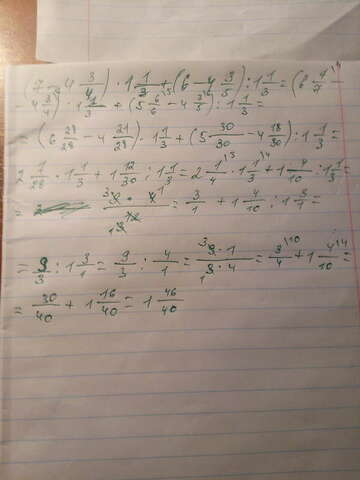 (7 - 4 3/4) · 1 1/3 + (6 - 4 3/5) : 1 1/3 = (6 7/7 -
4 3/4) · 1 1/3 + (5 6/6 - 4 3/5) : 1 1/3 =
= (6 28/28 - 4 21/28) · 1 1/3 + (5 30/30 - 4 18/30) : 1 1/3 =
2 7/28 · 1 1/3 + 1 12/30 : 1 1/3 = 2 1/4 · 1 1/3 + 1 4/10 : 1 1/3 =
= 3/1 + 1 4/10 : 1 3/1 =
= 9/3 : 1 3/1 = 9/3 : 4/1 = 9 · 1/3 · 4 = 3/4 + 1 4/10 =
= 30/40 + 1 16/40 = 1 46/40